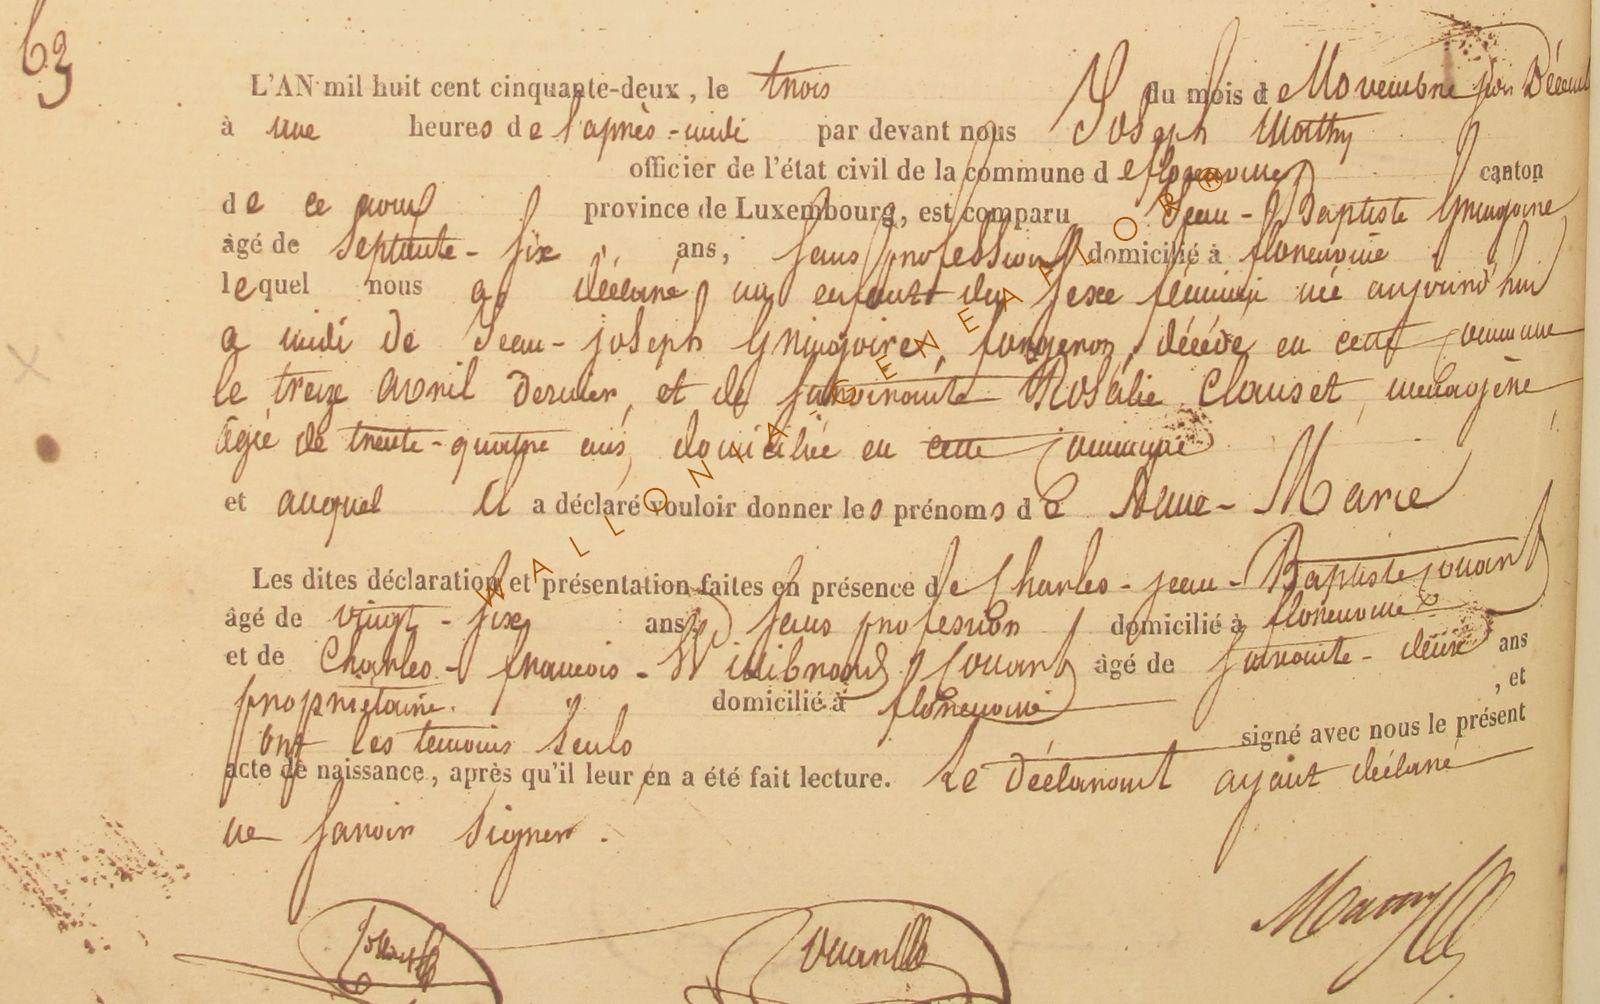 63
L'AN mil huit cent cinquante-deux, le trois du mois de Novembre
à une heures de l'après-midi par devant nous Joseph
officier de l'état civil de la commune de florenville canton
de ce nom province de Luxembourg, est comparu Jean-Baptiste
âgé de septante-six ans, sans profession domicilié à florenville
lequel nous a déclaré un enfant du sexe féminin né aujourd'hui
a midi de Jean-joseph forgeron, décédé en cette commune
le treize avril dernier, et de Rosalie menagère
âgée de trente-quatre ans, domiciliée en cette commune
et auquel il a déclaré vouloir donner les prénoms de Anne-Marie
Les dites déclaration et présentation faites en présence de Charles-jean-Baptiste
âgé de vingt-six ans, sans profession domicilié à florenville
et de Charles-francois-Willibrord âgé de deux ans
propriétaire. domicilié à florenville , et
ont les temoins seuls signé avec nous le présent
acte de naissance, après qu'il leur en a été fait lecture. Le Déclarant ayant déclaré
ne savoir signer.
WALLONIA-GENEALOR®